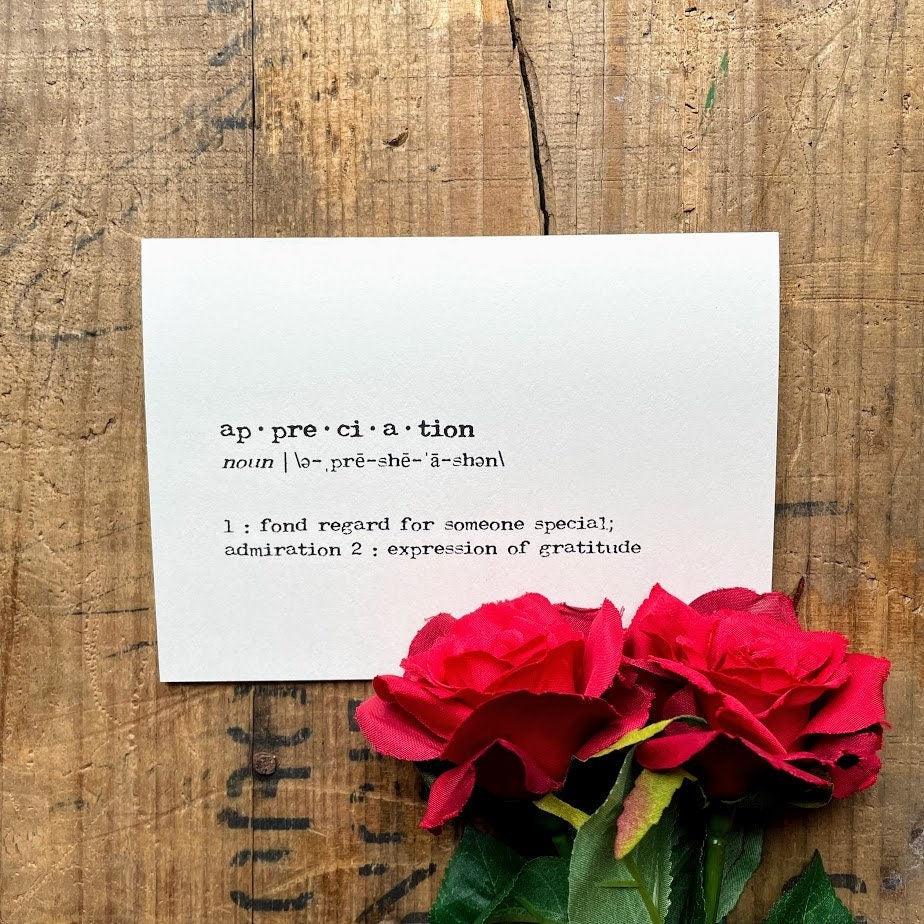 ap·pre·ci·a·tion
noun | \ə-ˌprē-shē-ˈā-shən\
1 : fond regard for someone special;
admiration 2 : expression of gratitude